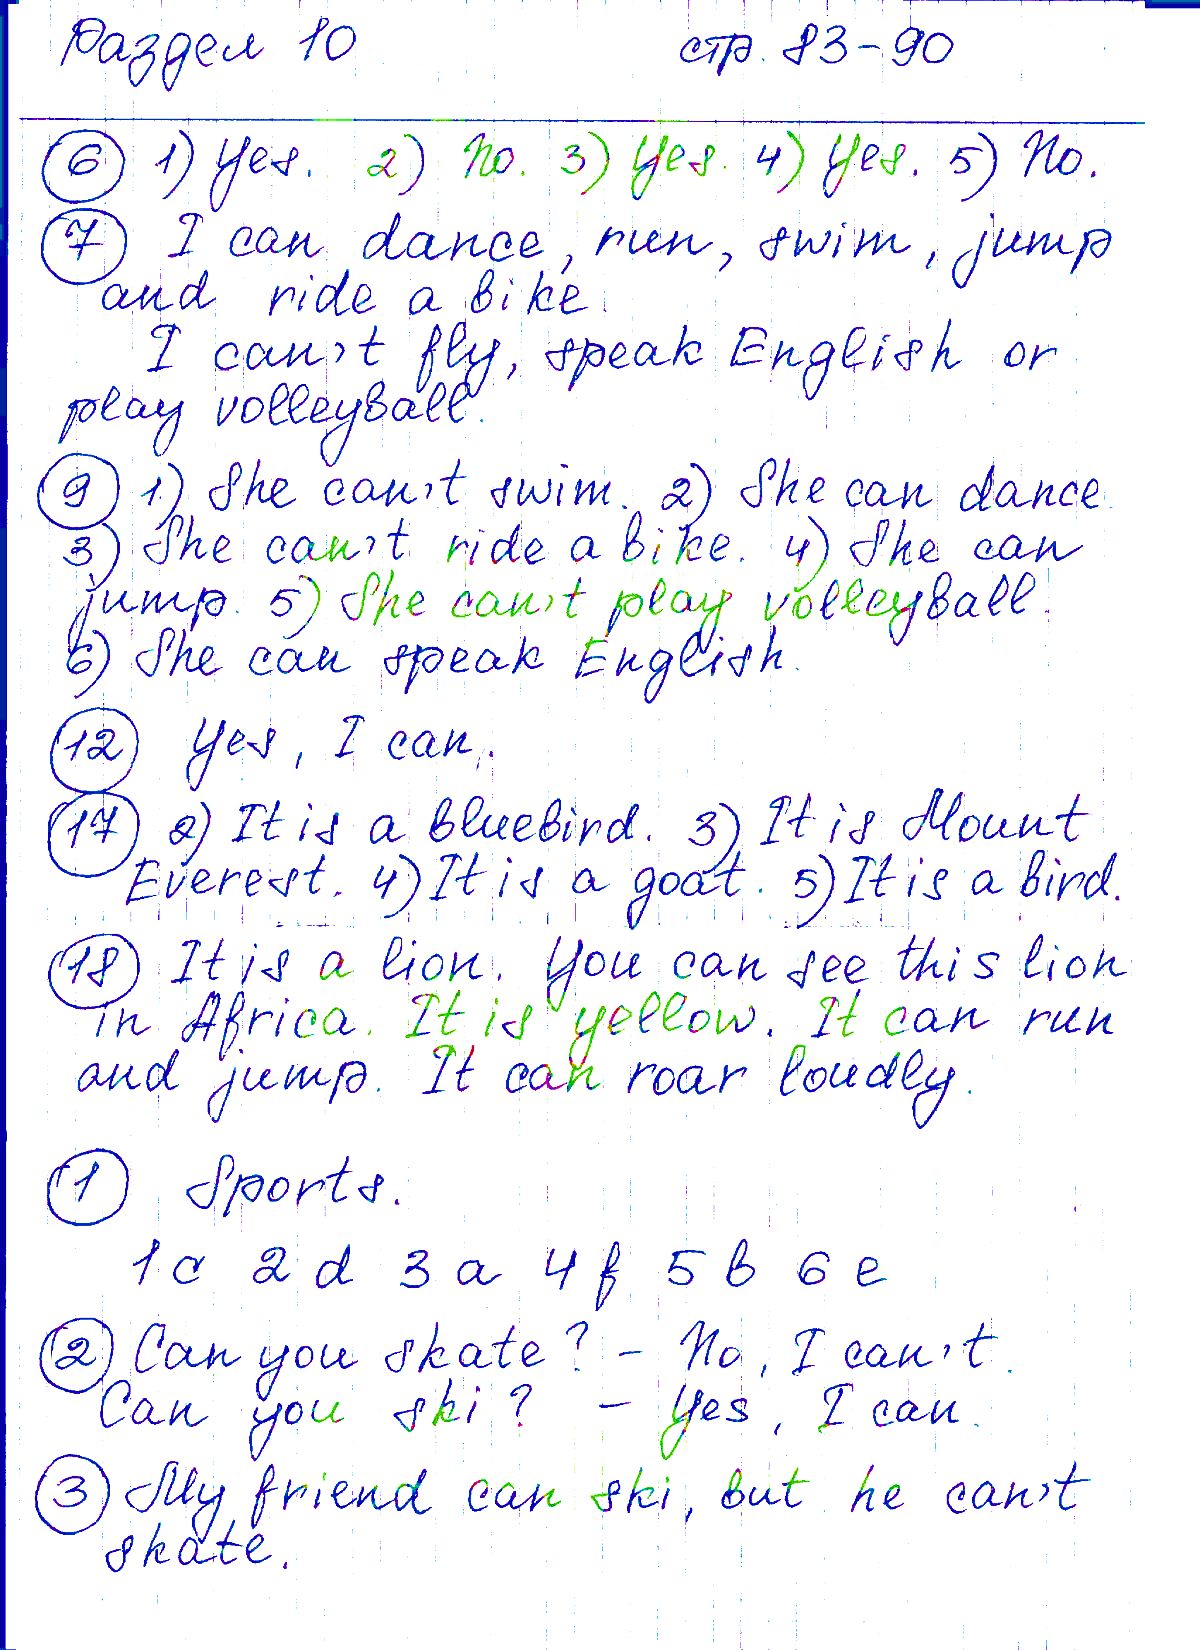 Раздел 10 стр. 83-90
6 1) Yes. 2) No. 3) Yes. 4) Yes. 5) No.
7 I can dance, run, swim, jump
and ride a bike.
I can't fly, speak English or
play volleyball.
9 1) She can't swim. 2) She can dance.
3) She can't ride a bike. 4) She can
jump. 5) She can't play volleyball.
6) She can speak English.
12 Yes, I can.
17 2) It is a bluebird. 3) It is Mount
Everest. 4) It is a goat. 5) It is a bird.
18 It is a lion. You can see this lion
in Africa. It is yellow. It can run
and jump. It can roar loudly.
1 Sports.
1 c 2 d 3 a 4 f 5 b 6 e
2 Can you skate? – No, I can't.
Can you ski? – Yes, I can.
3 My friend can ski, but he can't
skate.